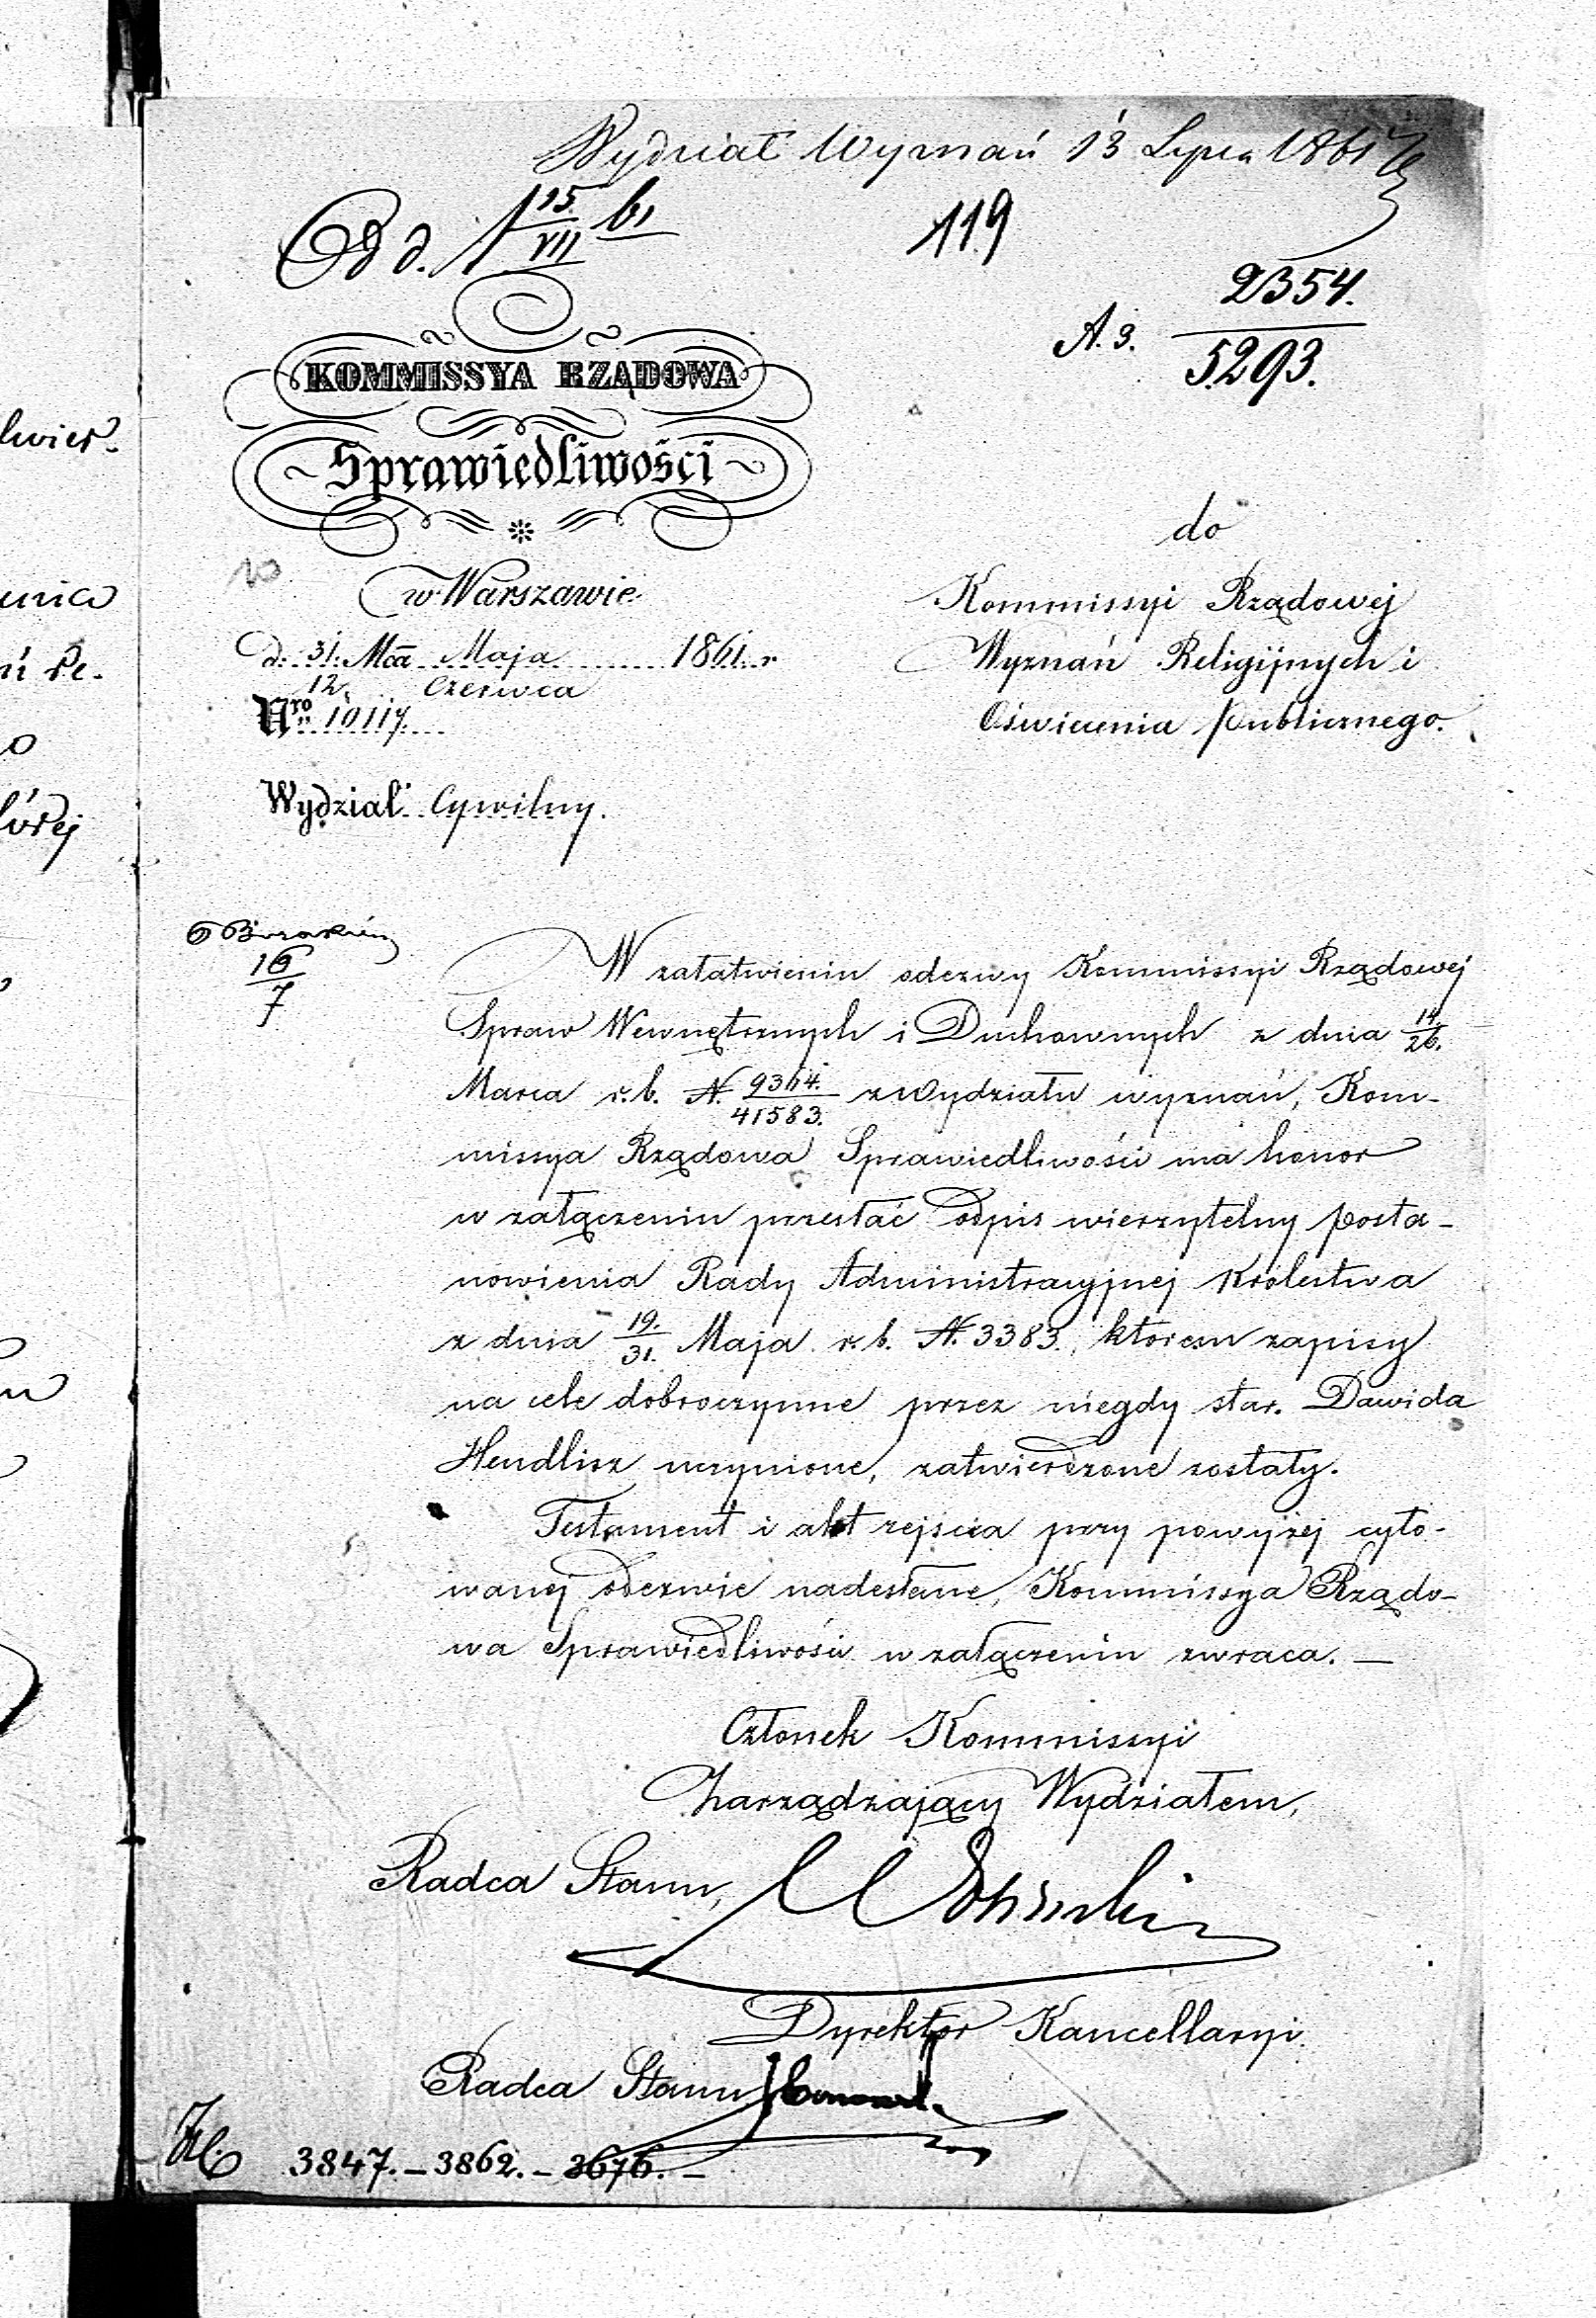 Wydział Wyznań 13 Lipca 1861
Odd. 15/VII 61
119
2354.
A. 3.
5293.
KOMMISSYA RZĄDOWA
Sprawiedliwości
do
w Warszawie
Kommissyi Rządowej
d. 31. Mca Maja 1861. r
Wyznań Religijnych i
12. Czerwca
Nro 10117.
Oświecenia publicznego.
Wydział Cywilny.
16/7
W załatwieniu odezwy Kommissyi Rządowej
Spraw Wewnętrznych i Duchownych z dnia 14/26.
Marca r. b. N. 9364./41583. z Wydziału wyznań, Kom-
missya Rządowa Sprawiedliwości ma honor
w załączeniu przesłać odpis wierzytelny posta-
nowienia Rady Administracyjnej Królestwa
z dnia 19./31. Maja r. b. N. 3383., którem zapisy
na cele dobroczynne przez niegdy star. Dawida
Hendlisz uczynione, zatwierdzone zostały.
Testament i akt zejścia przy powyżej cyto-
wanej odezwie nadesłane, Kommissya Rządo-
wa Sprawiedliwości w załączeniu zwraca. —
Członek Kommissyi
Zarządzający Wydziałem,
Radca Stanu,
Dyrektor Kancellaryi
Radca Stanu
3847. – 3862. – 3676. –